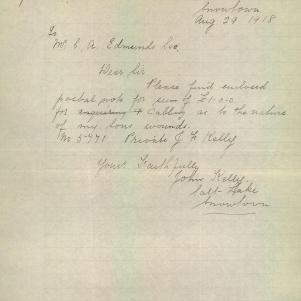 Snowtown
Aug 29 1918
To
Mr C. A. Edmunds Esq.
Dear Sir
Please find enclosed
postal note for sum of £1-0-0
for enquiring & Cabling as to the nature
of my sons wounds.
No 5971 Private J F Kelly
Yours Faithfully
John Kelly.
Salt Lake
Snowtown